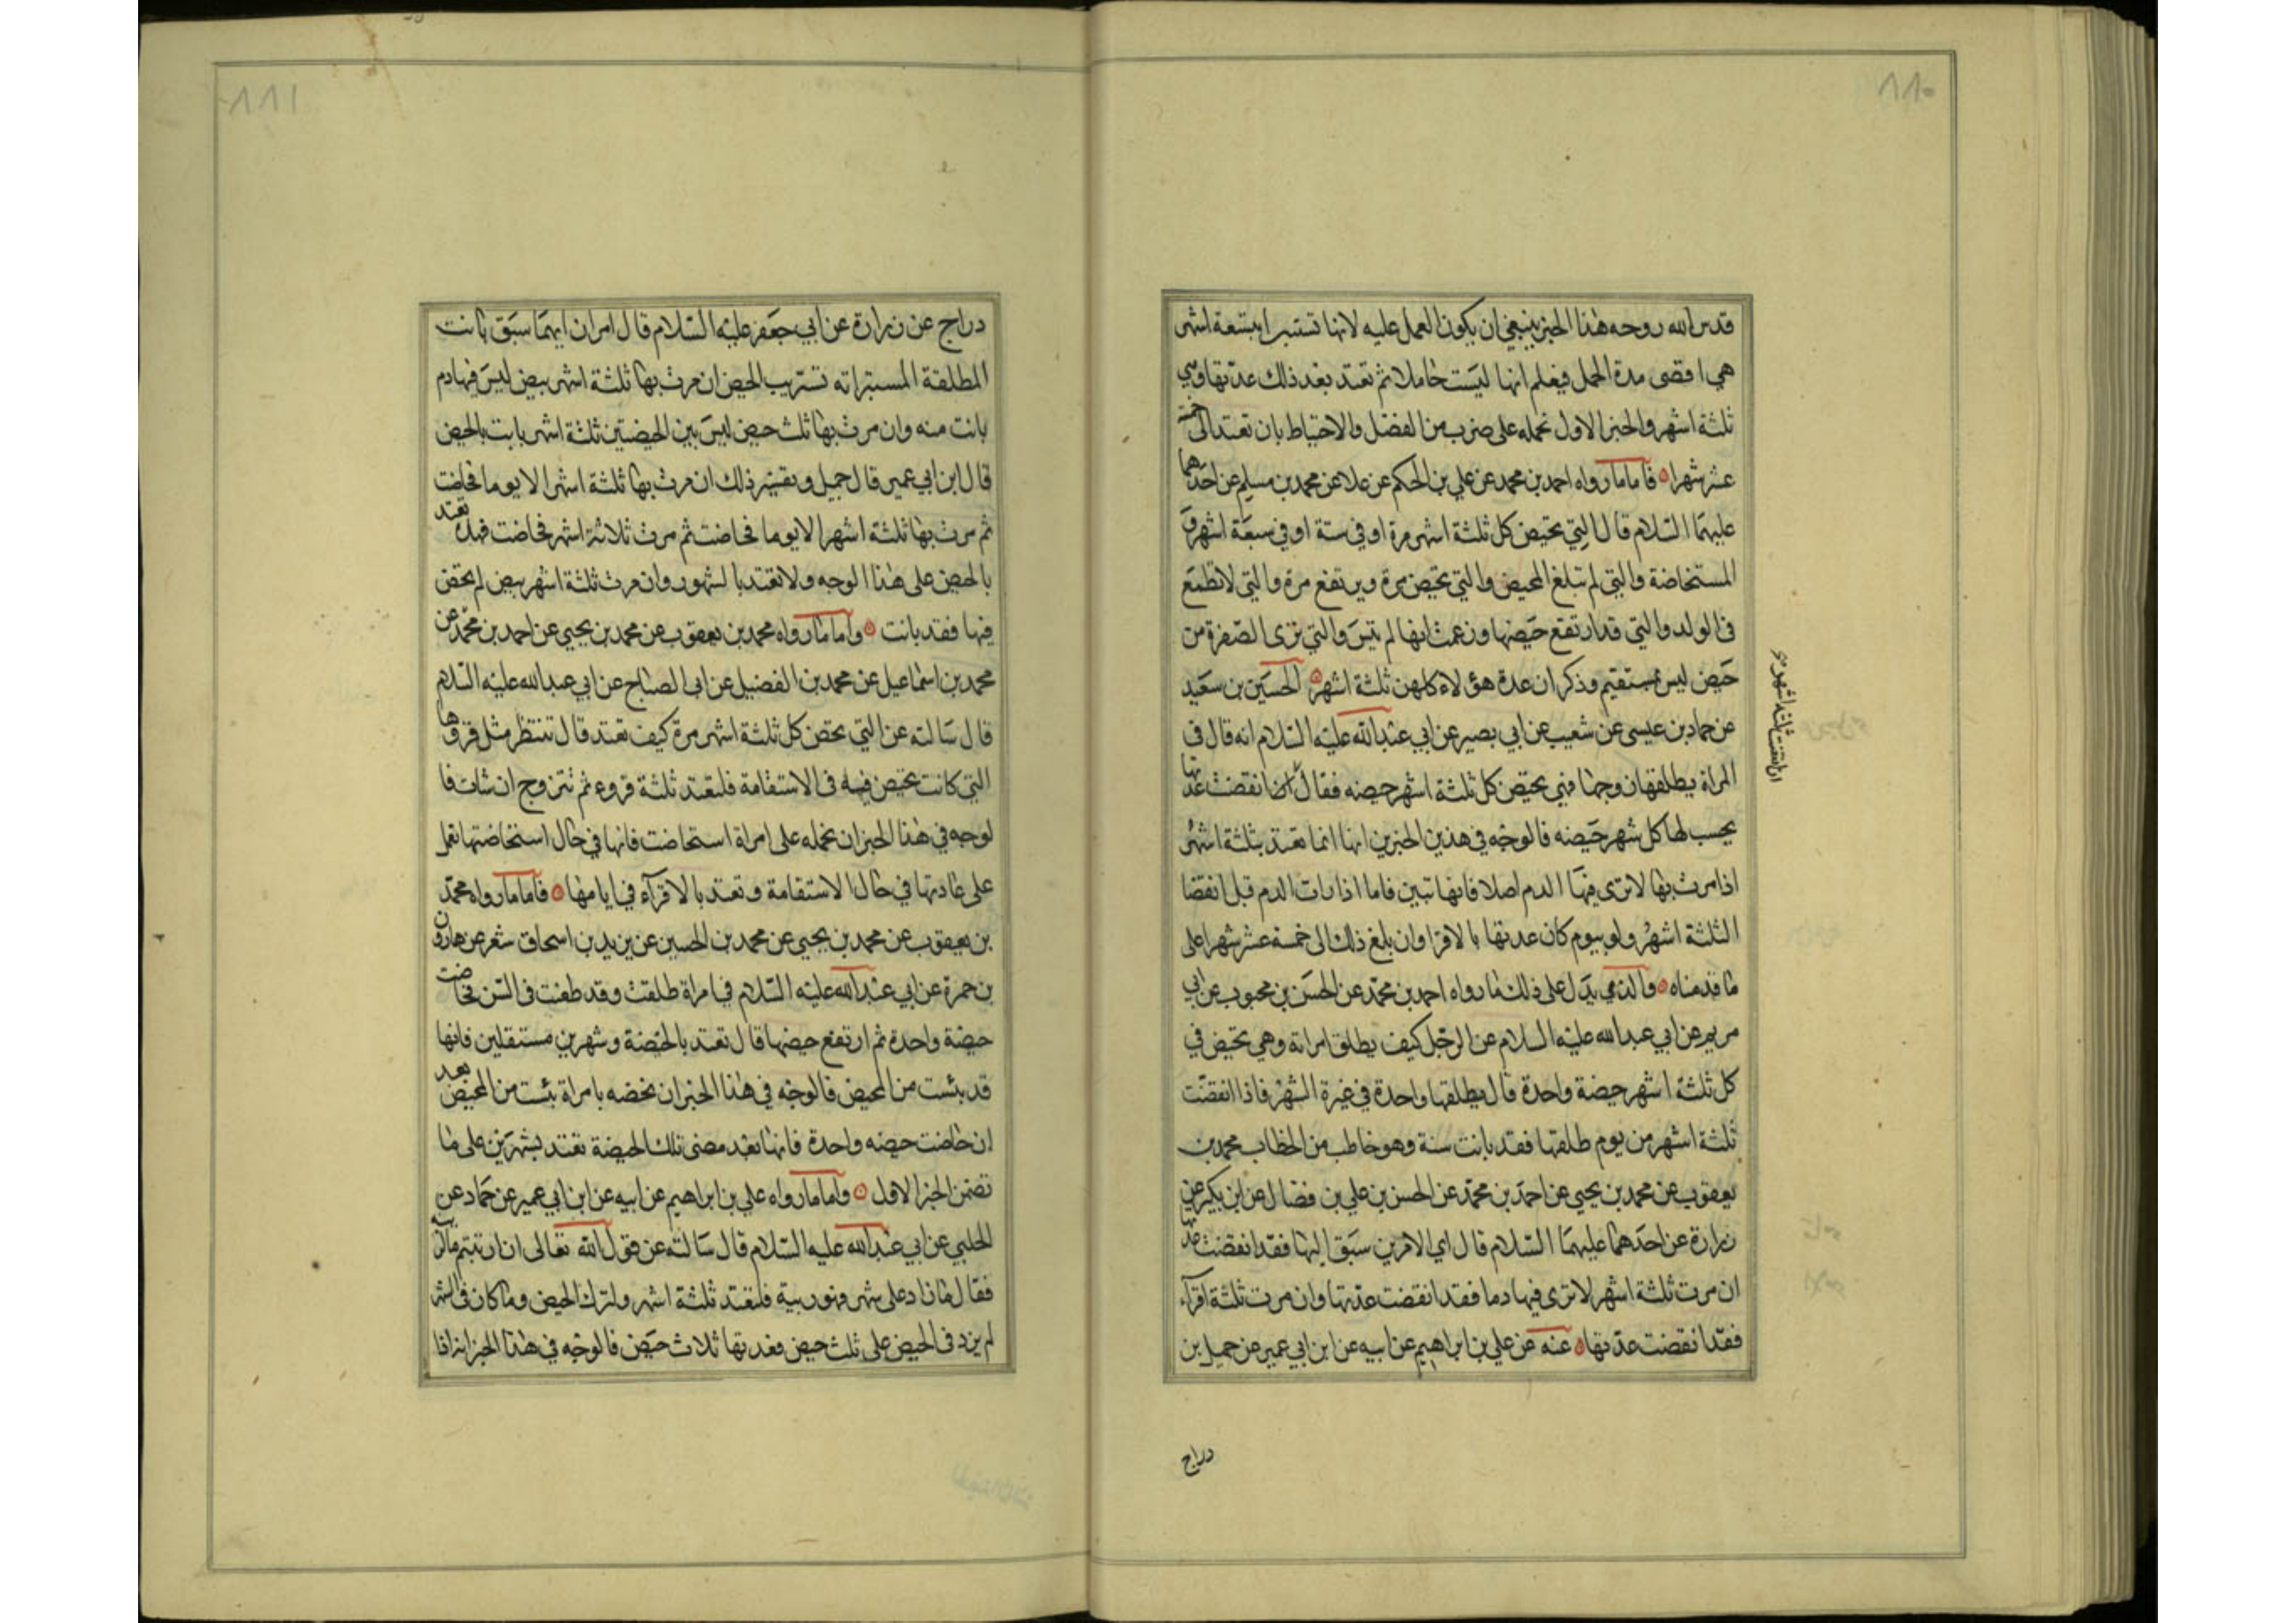 ٨٨٠
قدس الله روحه هذا الخبر ينبغي ان يكون العمل عليه لانها تستبرا بتسعة اشهر
هي اقصى مدة الحمل فيعلم انها ليست حاملا ثم تعتد بعد ذلك عدتها وهي
ثلثة اشهر والخبر الاول نحمله على ضرب من الفضل والاحتياط بان تعتد الى خمسة
عشر شهرا فاما ما رواه احمد بن محمد عن علي بن الحكم عن علا عن محمد بن مسلم عن احدهما
عليهما السلام قال التي تحيض كل ثلثة اشهر مرة او في ستة او في سبعة اشهر و
المستحاضة والتي لم تبلغ المحيض والتي تحيض مرة ويرتفع مرة والتي لا تطمع
في الولد والتي قد ارتفع حيضها وزعمت انها لم تيئس والتي ترى الصفرة من
حيض ليس بمستقيم وذكر ان عدة هؤلاء كلهن ثلثة اشهر الحسين بن سعيد
عن حماد بن عيسى عن شعيب عن ابي بصير عن ابي عبد الله عليه السلام انه قال في
المراة يطلقها زوجها فهي تحيض كل ثلثة اشهر حيضه فقال اذا انقضت عدتها
يحسب لها كل شهر حيضه فالوجه في هذين الخبرين انها انما تعتد بثلثة اشهر
اذا مرت بها لا ترى فيها الدم اصلا فانها تبين فاما اذا رات الدم قبل انقضا
الثلثة اشهر ولو بيوم كان عدتها بالاقرا وان بلغ ذلك الى خمسة عشر شهرا على
ما قدمناه والذي يدل على ذلك ما رواه احمد بن محمد عن الحسن بن محبوب عن ابي
مريم عن ابي عبد الله عليه السلام عن الرجل كيف يطلق امراته وهي تحيض في
كل ثلثة اشهر حيضة واحدة قال يطلقها واحدة في غرة الشهر فاذا انقضت
ثلثة اشهر من يوم طلقها فقد بانت سنة وهو خاطب من الخطاب محمد بن
يعقوب عن محمد بن يحيى عن احمد بن محمد عن الحسن بن علي بن فضال عن ابن بكير عن
زرارة عن احدهما عليهما السلام قال اي الامرين سبق اليها فقد انقضت عدتها
ان مرت ثلثة اشهر لا ترى فيها دما فقد انقضت عدتها وان مرت ثلثة اقرآء
فقد انقضت عدتها عنه عن علي بن ابراهيم عن ابيه عن ابن ابي عمير عن جميل بن
دراج
٨٨١
دراج عن زرارة عن ابي جعفر عليه السلام قال امران ايهما سبق بانت
المطلقة المستبراته تستريب الحيض ان مرت بها ثلثة اشهر بيض ليس فيها دم
بانت منه وان مرت بها ثلث حيض ليس بين الحيضتين ثلثة اشهر بانت بالحيض
قال ابن ابي عمير قال جميل وتفسير ذلك ان مرت بها ثلثة اشهر الا يوما فحاضت
ثم مرت بها ثلثة اشهر الا يوما فحاضت ثم مرت ثلاثة اشهر فحاضت فهذه تعتد
بالحيض على هذا الوجه ولا تعتد بالشهور وان مرت ثلثة اشهر بيض لم تحض
فيها فقد بانت واما ما رواه محمد بن يعقوب عن محمد بن يحيى عن احمد بن محمد عن
محمد بن اسماعيل عن محمد بن الفضيل عن ابي الصباح عن ابي عبد الله عليه السلام
قال سالته عن التي تحض كل ثلثة اشهر مرة كيف تعتد قال تنتظر مثل قروها
التي كانت تحيض فيه في الاستقامة فلتعتد ثلثة قروء ثم تتزوج ان شات فا
لوجه في هذا الخبر ان نحمله على امراة استحاضت فانها في حال استحاضتها تعمل
على عادتها في حال الاستقامة وتعتد بالاقرآء في ايامها فاما ما رواه محمد
بن يعقوب عن محمد بن يحيى عن محمد بن الحسين عن يزيد بن اسحاق شعر عن هارون
بن حمزة عن ابي عبد الله عليه السلام في امراة طلقت وقد طعنت في السن فحاضت
حيضة واحدة ثم ارتفع حيضها قال تعتد بالحيضة وشهرين مستقلين فانها
قد يئست من المحيض فالوجه في هذا الخبر ان نخصه بامراة يئست من المحيض بعد
ان حاضت حيضه واحدة فانها تعد مضى تلك الحيضة تعتد بشهرين على ما
تضمن الخبر الاول واما ما رواه علي بن ابراهيم عن ابيه عن ابن ابي عمير عن حماد عن
الحلبي عن ابي عبد الله عليه السلام قال سالته عن قول الله تعالى ان ارتبتم
فقال ما زاد على شهر فهو ريبة فلتعتد ثلثة اشهر ولترك الحيض وما كان في الشهر
لم يزد في الحيض على ثلث حيض فعدتها ثلاث حيض فالوجه في هذا الخبر انه اذا